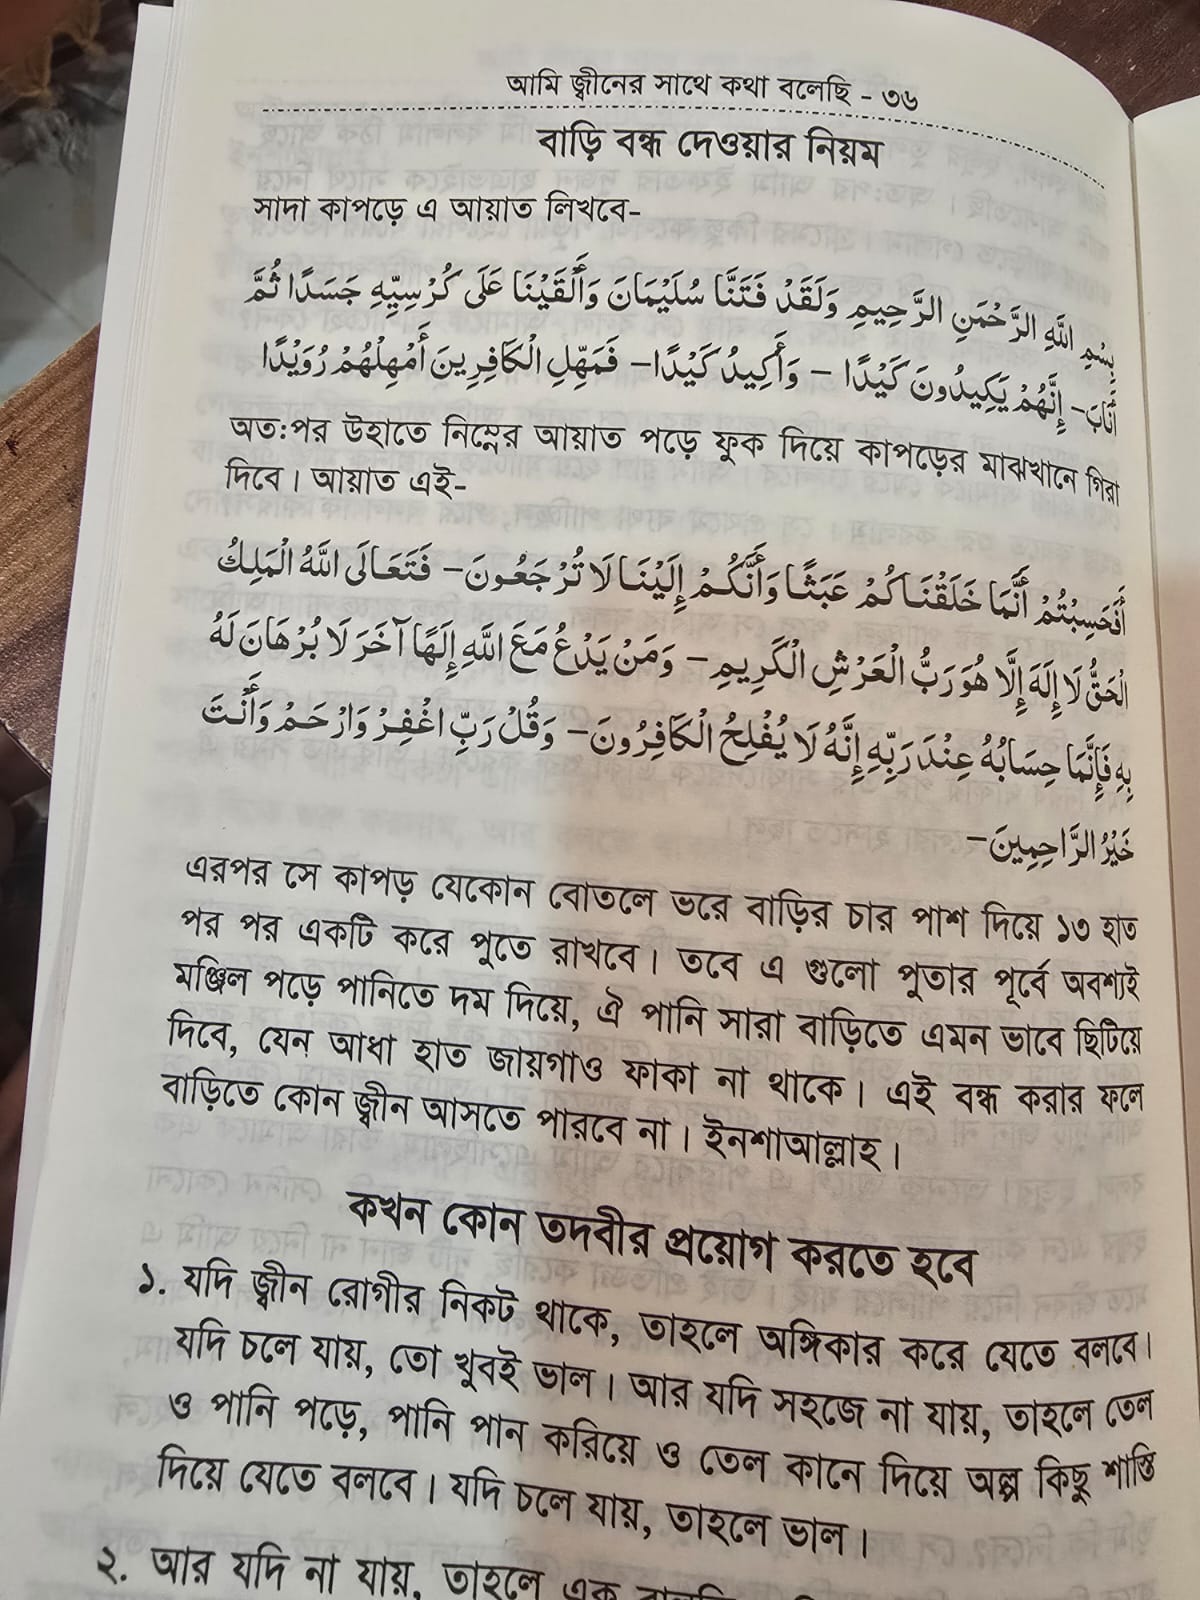 আমি জ্বীনের সাথে কথা বলেছি - ৩৬
বাড়ি বন্ধ দেওয়ার নিয়ম
সাদা কাপড়ে এ আয়াত লিখবে-
بِسْمِ اللَّهِ الرَّحْمَنِ الرَّحِيمِ وَلَقَدْ فَتَنَّا سُلَيْمَانَ وَأَلْقَيْنَا عَلَى كُرْسِيِّهِ جَسَدًا ثُمَّ
أَنَابَ– إِنَّهُمْ يَكِيدُونَ كَيْدًا – وَأَكِيدُ كَيْدًا– فَمَهِّلِ الْكَافِرِينَ أَمْهِلْهُمْ رُوَيْدًا
অত:পর উহাতে নিম্নের আয়াত পড়ে ফুক দিয়ে কাপড়ের মাঝখানে গিরা
দিবে। আয়াত এই-
أَفَحَسِبْتُمْ أَنَّمَا خَلَقْنَاكُمْ عَبَثًا وَأَنَّكُمْ إِلَيْنَا لَا تُرْجَعُونَ– فَتَعَالَى اللَّهُ الْمَلِكُ
الْحَقُّ لَا إِلَهَ إِلَّا هُوَ رَبُّ الْعَرْشِ الْكَرِيمِ– وَمَنْ يَدْعُ مَعَ اللَّهِ إِلَهًا آخَرَ لَا بُرْهَانَ لَهُ
بِهِ فَإِنَّمَا حِسَابُهُ عِنْدَ رَبِّهِ إِنَّهُ لَا يُفْلِحُ الْكَافِرُونَ– وَقُلْ رَبِّ اغْفِرْ وَارْحَمْ وَأَنْتَ
خَيْرُ الرَّاحِمِينَ–
এরপর সে কাপড় যেকোন বোতলে ভরে বাড়ির চার পাশ দিয়ে ১৩ হাত
পর পর একটি করে পুতে রাখবে। তবে এ গুলো পুতার পূর্বে অবশ্যই
মঞ্জিল পড়ে পানিতে দম দিয়ে, ঐ পানি সারা বাড়িতে এমন ভাবে ছিটিয়ে
দিবে, যেন আধা হাত জায়গাও ফাকা না থাকে। এই বন্ধ করার ফলে
বাড়িতে কোন জ্বীন আসতে পারবে না। ইনশাআল্লাহ।
কখন কোন তদবীর প্রয়োগ করতে হবে
১. যদি জ্বীন রোগীর নিকট থাকে, তাহলে অঙ্গিকার করে যেতে বলবে।
যদি চলে যায়, তো খুবই ভাল। আর যদি সহজে না যায়, তাহলে তেল
ও পানি পড়ে, পানি পান করিয়ে ও তেল কানে দিয়ে অল্প কিছু শাস্তি
দিয়ে যেতে বলবে। যদি চলে যায়, তাহলে ভাল।
২. আর যদি না যায়, তাহলে এক